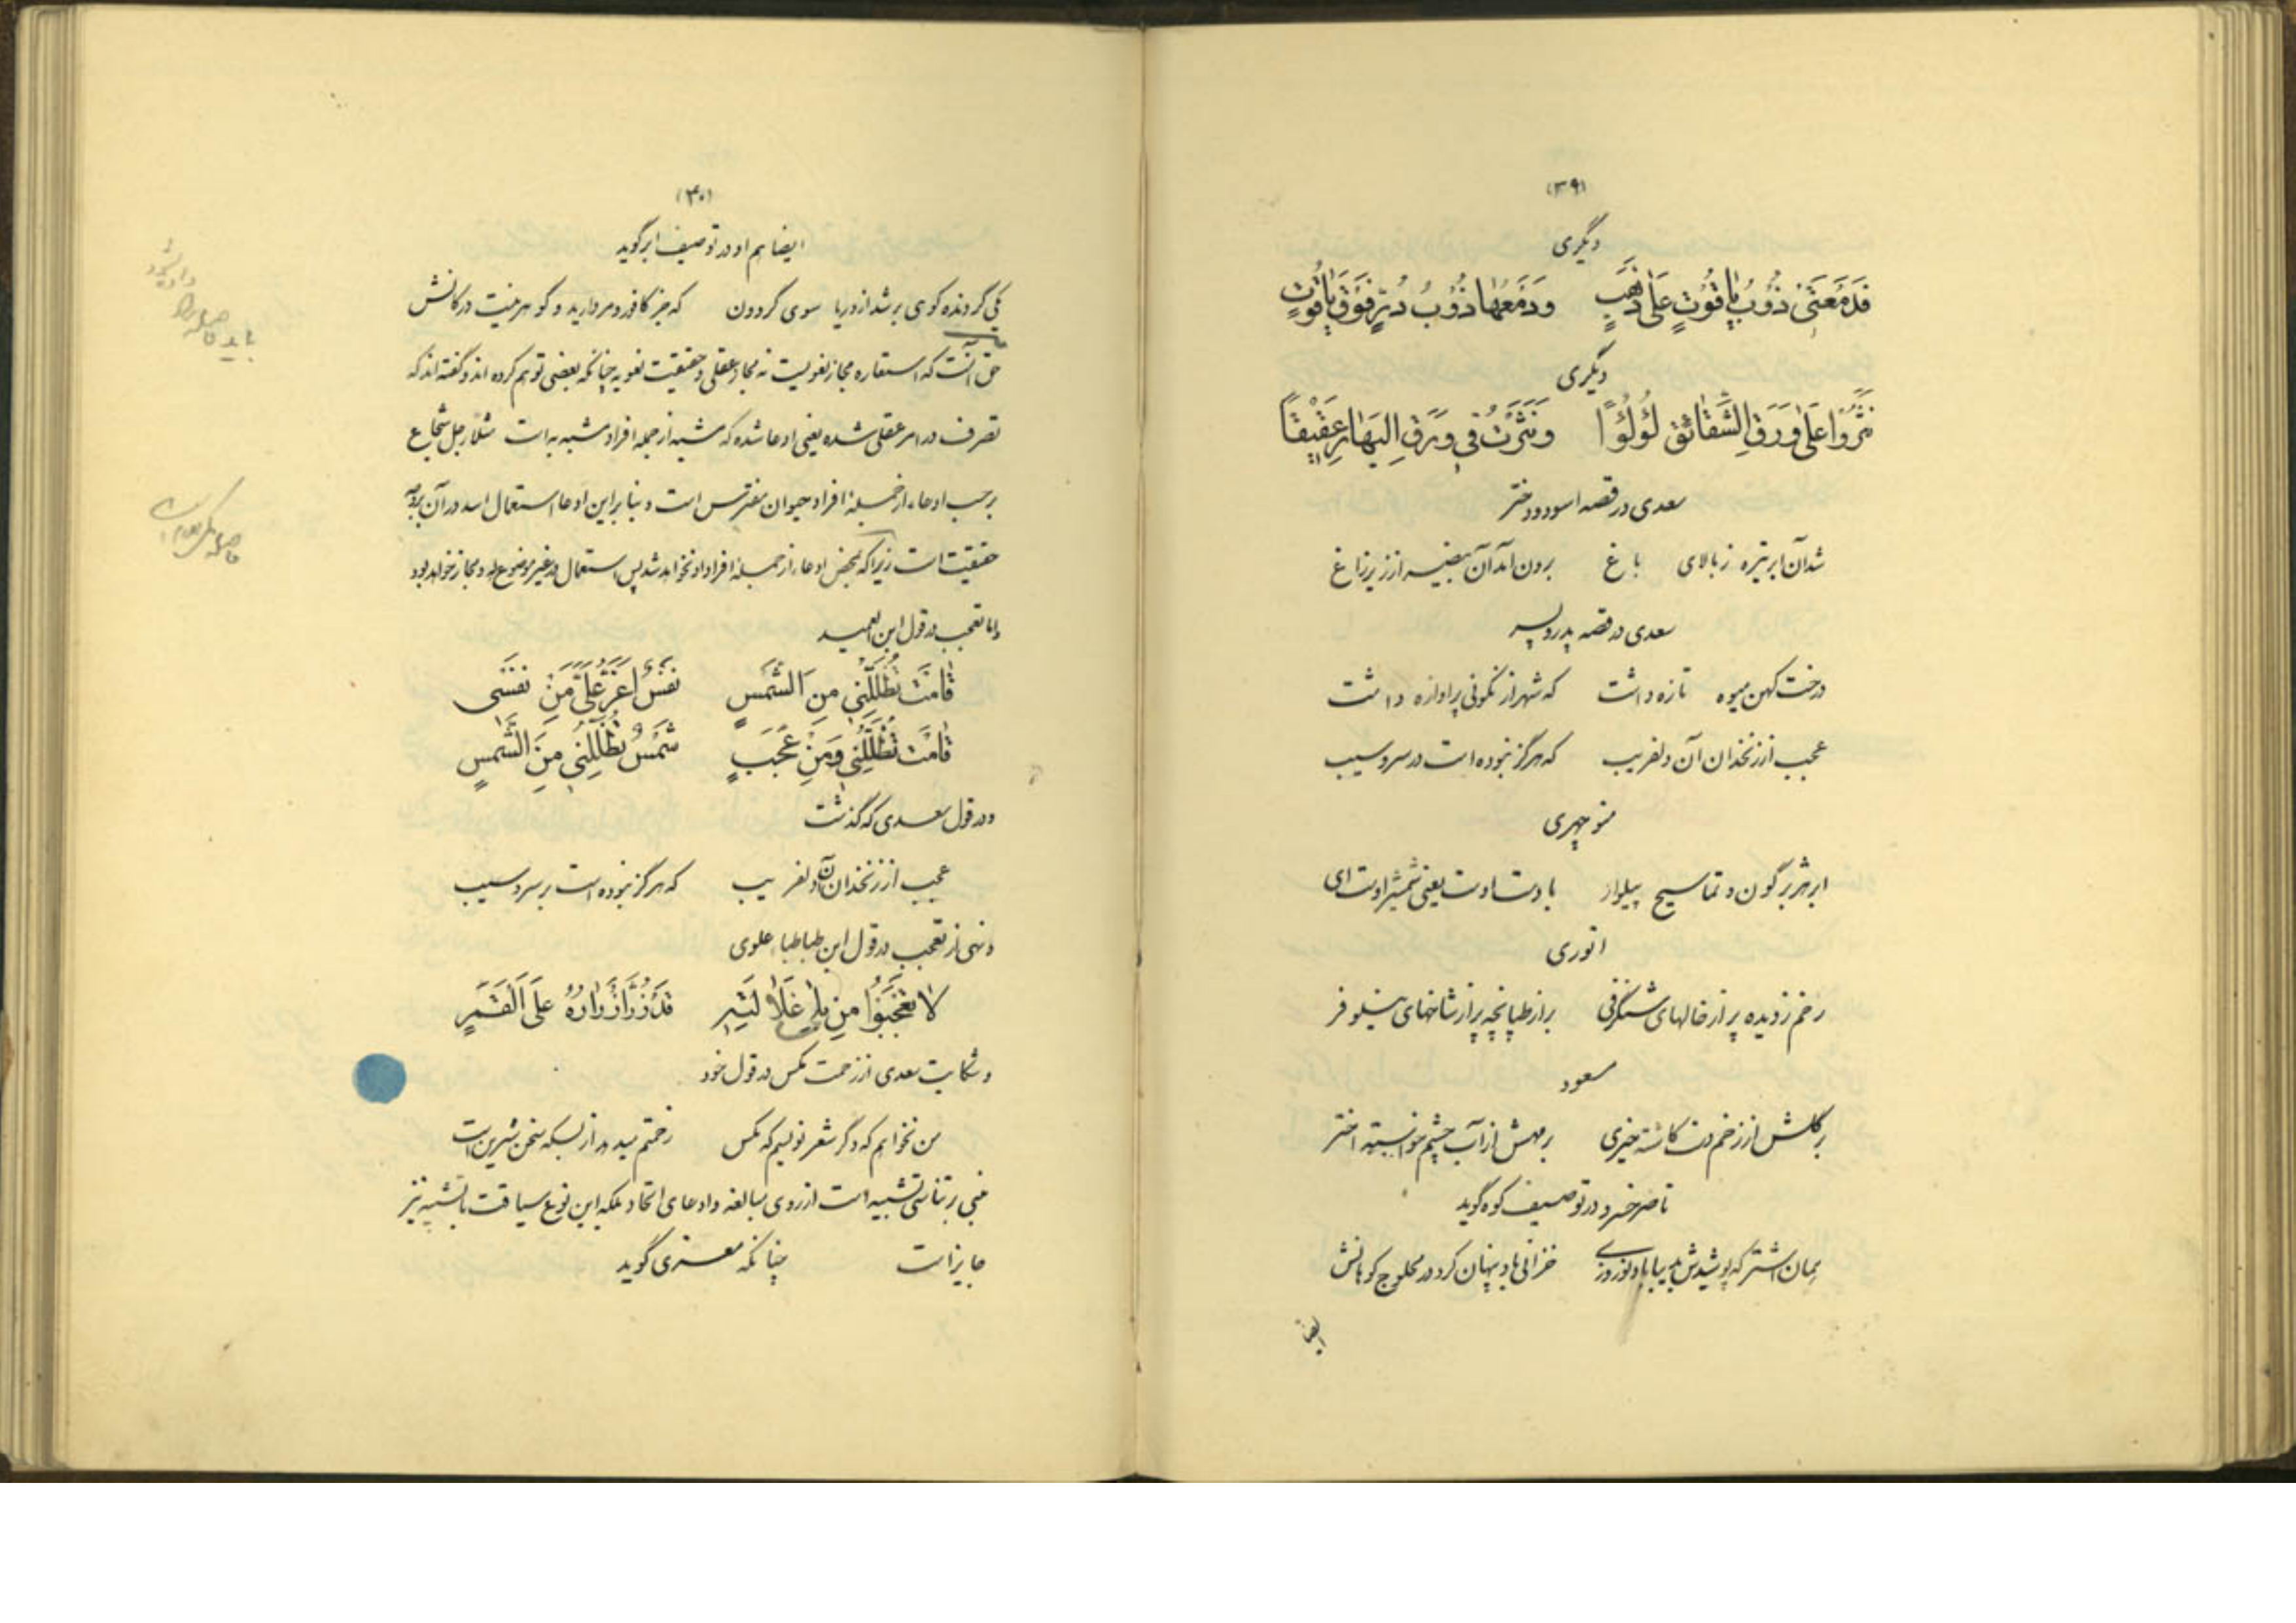 (۳۹)
دیگری
فَدَمْعَتی ذَوْبُ یاقُوتٍ عَلی ذَهَبٍ    وَدَمْعُها ذَوْبُ دُرٍّ فَوْقَ یاقُوتٍ
دیگری
نَثَرُوا عَلی وَرَقِ الشَّقائِقِ لُؤْلُؤًا    وَنَثَرْتُ فی وَرَقِ البَهارِ عَقیقًا
سعدی در قصه اسود و دختر
شد آن ابر تیره ز بالای باغ    برون آمد آن بیضه از زیر زاغ
سعدی در قصه پدر و پسر
درخت کهن میوه تازه داشت    که شهر از نکوئی پرآوازه داشت
عجب از زنخدان آن دلفریب    که هرگز نبوده است در سرو سیب
منوچهری
ابر هژبرگون و تماسیح پیلوار    با دست اوست یعنی شمشیر اوست ای
انوری
رخم ز دیده پر از خالهای شنگرفی    بر از طپانچه پر از شاخهای نیلوفر
مسعود
بر گلش از زخم دست کاشته خیری    بر مهش از آب چشم خواسته اختر
ناصر خسرو در توصیف کوه گوید
بمان اشتر که پوشیدش بدیبا باد نوروزی    خزانی باد پنهان کرد در محلوج کوهانش
ایضا
(۴۰)
ایضا هم او در توصیف ابر گوید
یکی گردنده کوهی بر شد از دریا سوی گردون    که جز کافور و مروارید و گوهر نیست در کانش
حق آنست که استعاره مجاز لغویست نه مجاز عقلی و حقیقت لغویه چنانکه بعضی توهم کرده اند و گفته اند که
تصرف در امر عقلی شده یعنی ادعا شده که مشبه از جمله افراد مشبه به است مثلا رجل شجاع
برحسب ادعاء از جمله افراد حیوان مفترس است و بنابراین ادعا استعمال اسد در آن بروجه
حقیقت است زیرا که بمحض ادعاء از جمله افراد او نخواهد شد پس استعمال در غیر موضوع له و مجاز خواهد بود
واما تعجب در قول ابن العمید
قامَتْ تُظَلِّلُنی مِنَ الشَّمْسِ    نَفْسٌ اَعَزُّ عَلَیَّ مِنْ نَفْسی
قامَتْ تُظَلِّلُنی وَمِنْ عَجَبٍ    شَمْسٌ تُظَلِّلُنی مِنَ الشَّمْسِ
و در قول سعدی که گذشت
عجب از زنخدان آن دلفریب    که هرگز نبوده است بر سرو سیب
و نهی از تعجب در قول ابن طباطباء علوی
لا تَعْجَبُوا مِنْ بِلی غَلالَتِهِ    قَدْ زُرَّ اَزْرارُهُ عَلَی القَمَرِ
و شکایت سعدی از زحمت مگس در قول خود
من نخواهم که دگر شعر نویسم که مگس    زحمتم میدهد از بسکه سخن شیرین است
مبنی بر تناسی تشبیه است از روی مبالغه و ادعای اتحاد بلکه این نوع سیاقت با تشبیه نیز
جایز است    چنانکه معزی گوید